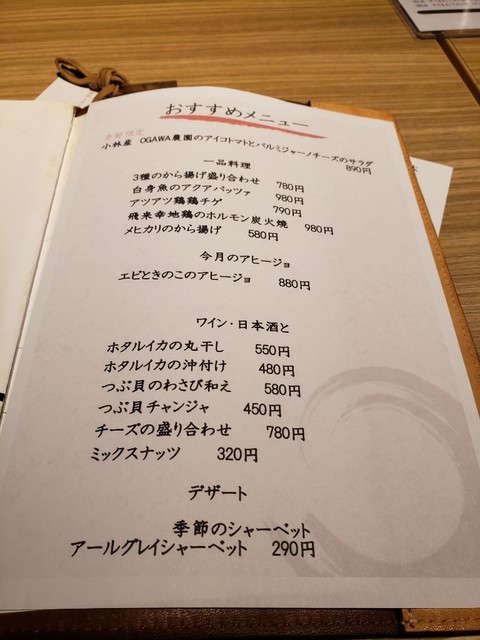 おすすめメニュー
季節限定
小林産 OGAWA農園のアイコトマトとパルミジャーノチーズのサラダ
890円
一品料理
3種のから揚げ盛り合わせ 780円
白身魚のアクアパッツァ 980円
アツアツ鶏鶏チゲ 790円
飛来幸地鶏のホルモン炭火焼 980円
メヒカリのから揚げ 580円
今月のアヒージョ
エビときのこのアヒージョ 880円
ワイン・日本酒と
ホタルイカの丸干し 550円
ホタルイカの沖付け 480円
つぶ貝のわさび和え 580円
つぶ貝チャンジャ 450円
チーズの盛り合わせ 780円
ミックスナッツ 320円
デザート
季節のシャーベット
アールグレイシャーベット 290円